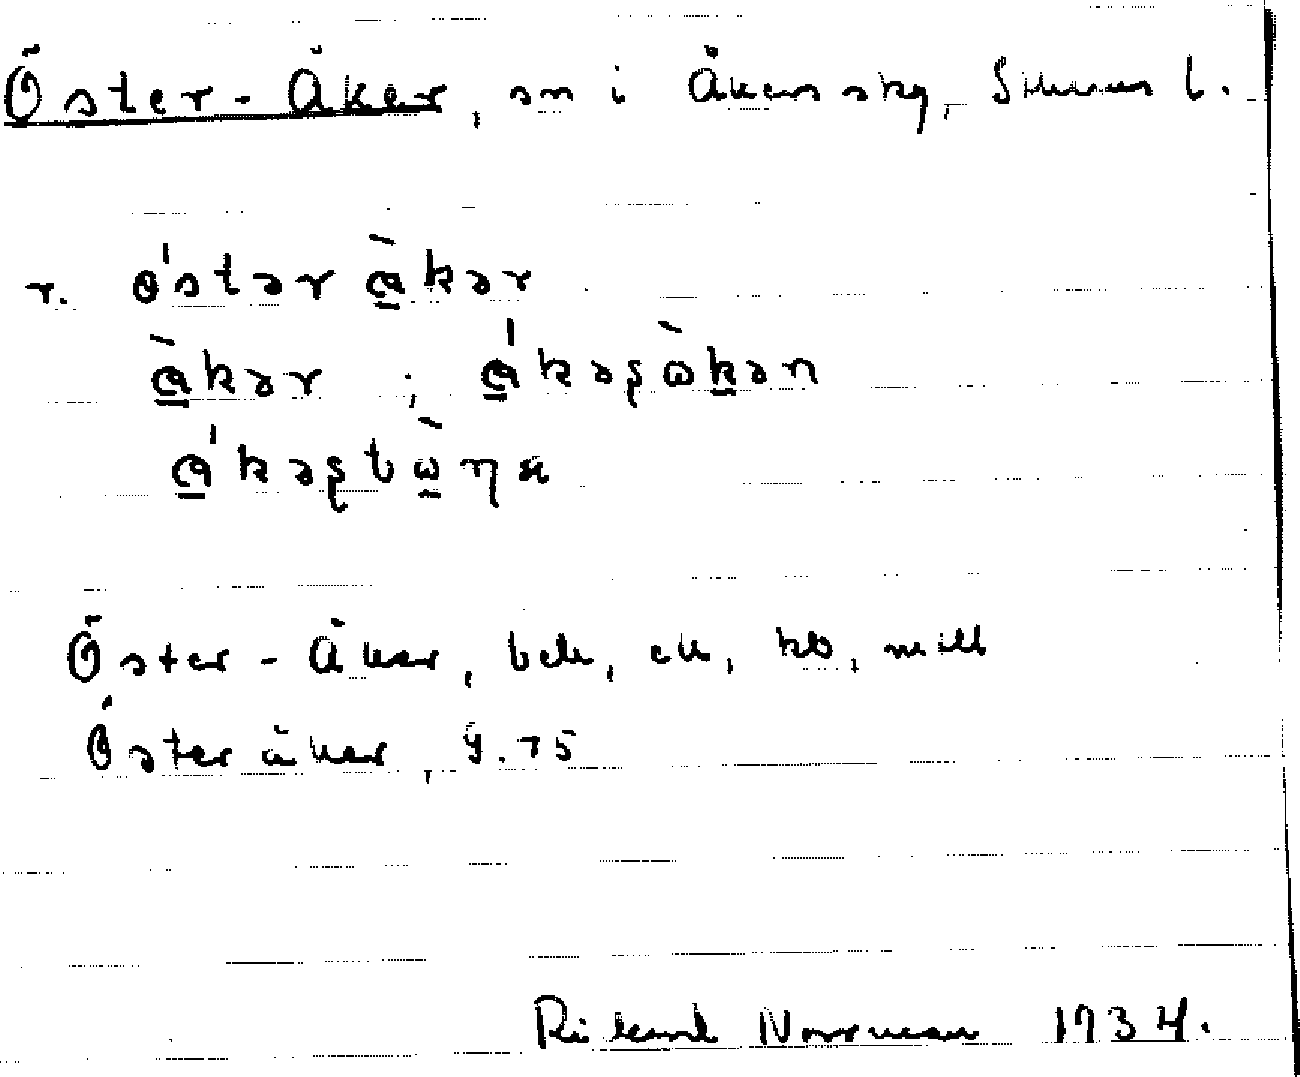 Öster-Åker, sn i Åkers skg, Sthms l.
r. ö́stər å̀kər
å̀kər ; ǻkəʂòkən
ǻkəʂtùna
Öster-Åker, bek, ek, kb,
Österåker, g. 75
Rikard Norrman 1934.